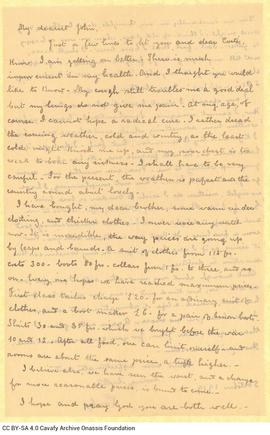 My dearest John,
Just a few lines to let you and dear
know I am getting on better. There is much
improvement in my health. And I thought you would
like to know. My cough still troubles me a good deal
but my lungs do not give me pain. At my age, of
course I cannot hope a radical cure. I rather dread
the coming weather, cold and wintry, as the least
cold might knock me up, and my poor chest is too
weak to bear any sickness. I shall have to be very
careful. For the present, the weather is perfect and the
country round about lovely.
I have bought, my dear brother, some warm under
clothing, and thicker clothes. I never wore any until
now. It is incredible, the way prices are going up
by leaps and bounds. A suit of clothes from 115 fr.
costs 300 - boots 80 fr. collars from 1 fr. to three, and so
on. Every one hopes we have reached maximum prices.
First class tailors charge £20. for an ordinary suit of
clothes, and a boot maker £6. for a pair of boots.
Shirts 30 and 35 frs. which we bought before the war
10 and 12. After all food, one can limit oneself, and
rooms are about the same price, a trifle higher.
I believe also we have seen the worst and a change
for more reasonable prices, is bound to come.
I hope and pray God you are both well.
CC BY-SA 4.0 Cavafy Archive Onassis Foundation